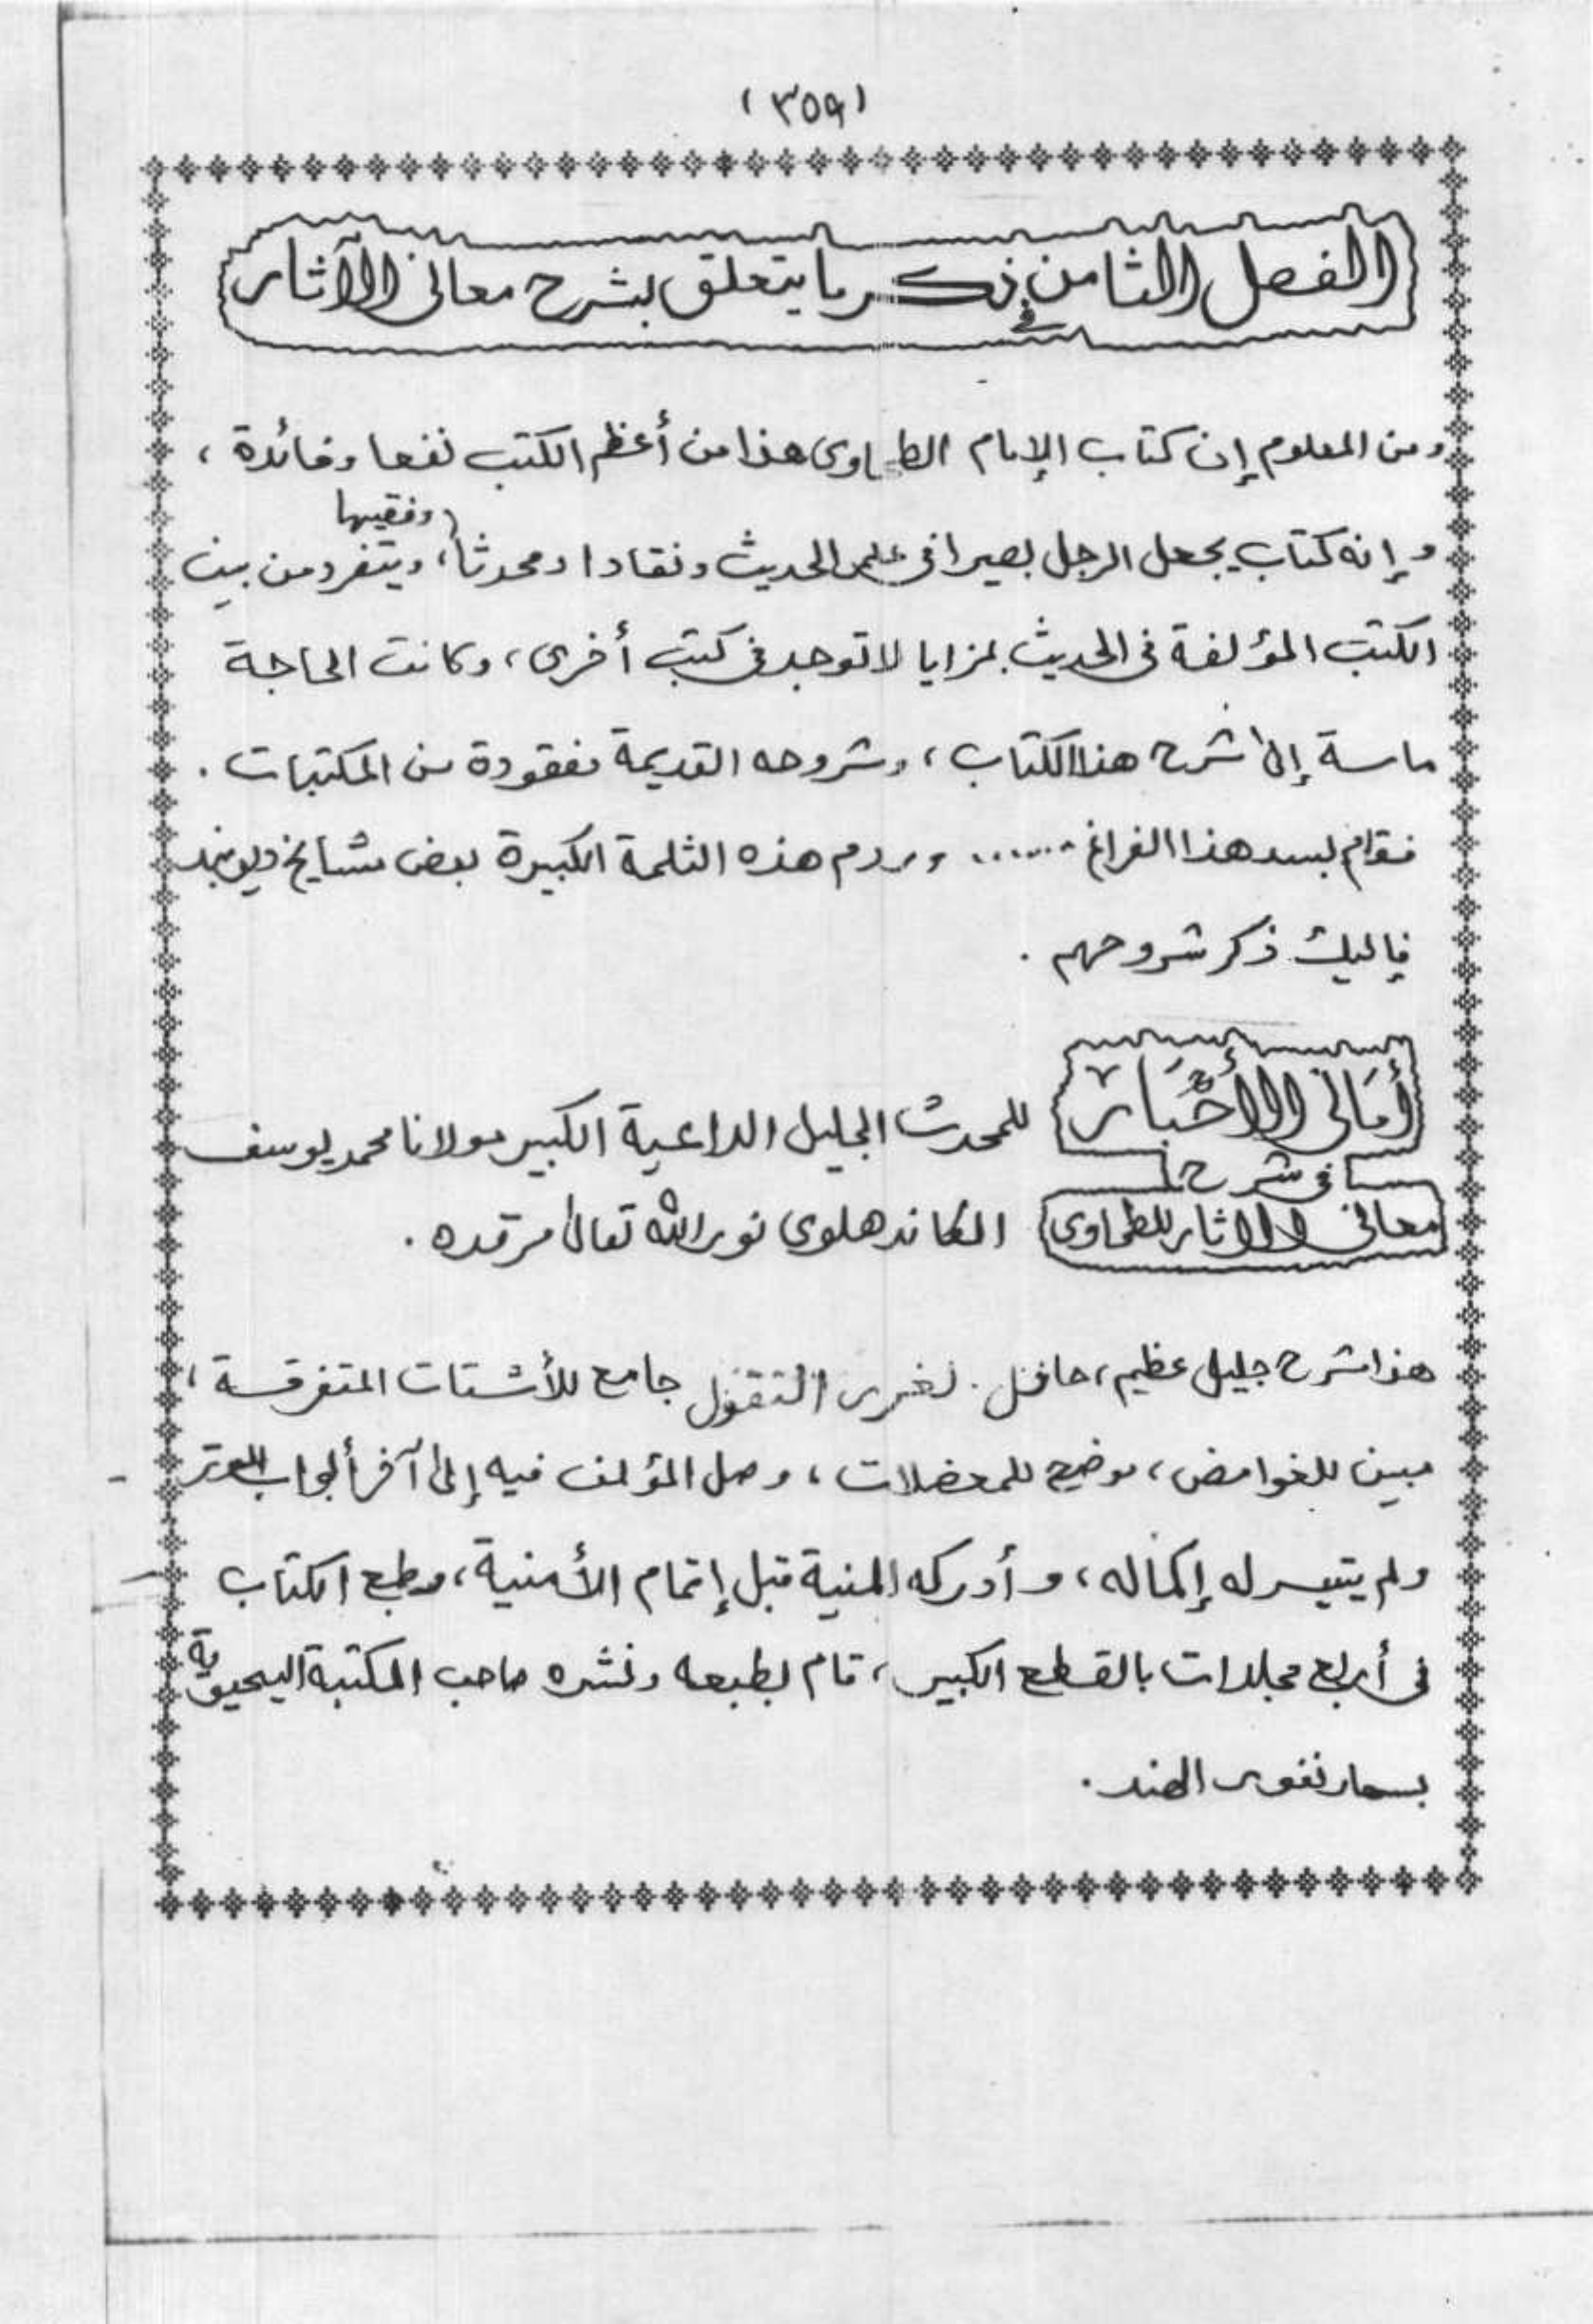 (٣٥٩)
الفصل الثامن في ذكر ما يتعلق بشرح معاني الآثار
ومن المعلوم إن كتاب الإمام الطحاوى هذا من أعظم الكتب نفعا وفائدة ،
وإنه كتاب يجعل الرجل بصيرا فى علم الحديث ونقادا ومحدثا وفقيها ، ويتفرد من بين
الكتب المؤلفة فى الحديث بمزايا لا توجد فى كتب أخرى ، وكانت الحاجة
ماسة إلى شرح هذا الكتاب ، وشروحه القديمة مفقودة من المكتبات .
فقام لسد هذا الفراغ ...... وردم هذه الثلمة الكبيرة بعض مشايخ ديوبند
فإليك ذكر شروحهم .
أَمَانِى الأَحْبَار
فى شرح
معانى الاثار للطحاوى
للمحدث الجليل الداعية الكبير مولانا محمد يوسف
الكاندهلوى نور الله تعالى مرقده .
هذا شرح جليل عظيم ، حافل . لغرر النقول جامع للأشتات المتفرقة ،
مبين للغوامض ، موضح للمعضلات ، وصل المؤلف فيه إلى آخر أبواب الوتر
ولم يتيسر له إكماله ، وأدركه المنية قبل إتمام الأمنية ، وطبع الكتاب
فى أربع مجلدات بالقطع الكبير ، قام بطبعه ونشره صاحب المكتبة اليحيوية
بسهارنفور الهند .